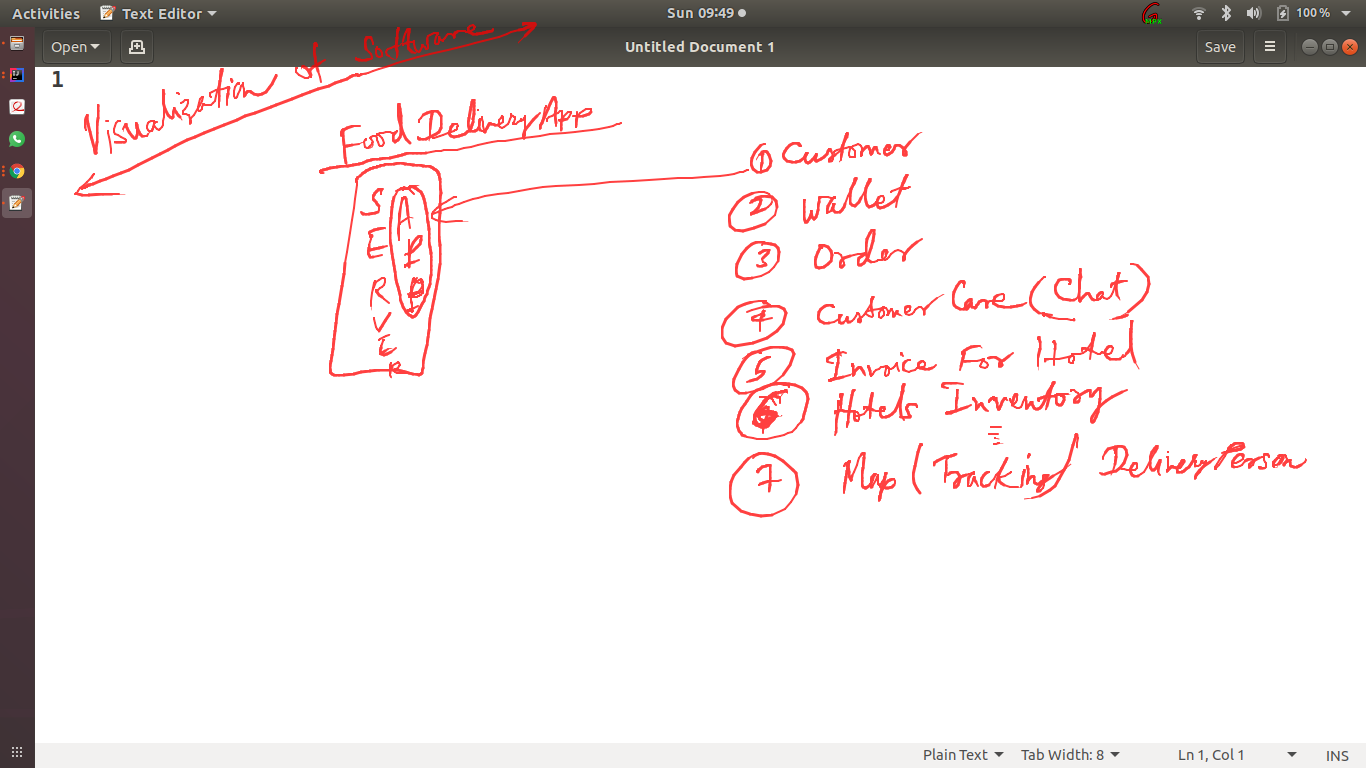 Activities Text Editor Sun 09:49 MPX 100 %
Open Untitled Document 1 Save
1
Visualization of Software
Food Delivery App
SERVER
API
1 Customer
2 Wallet
3 Order
4 Customer Care (Chat)
5 Invoice For Hotel
6 Hotels Inventory
7 Map (Tracking) Delivery Person
Plain Text Tab Width: 8 Ln 1, Col 1 INS